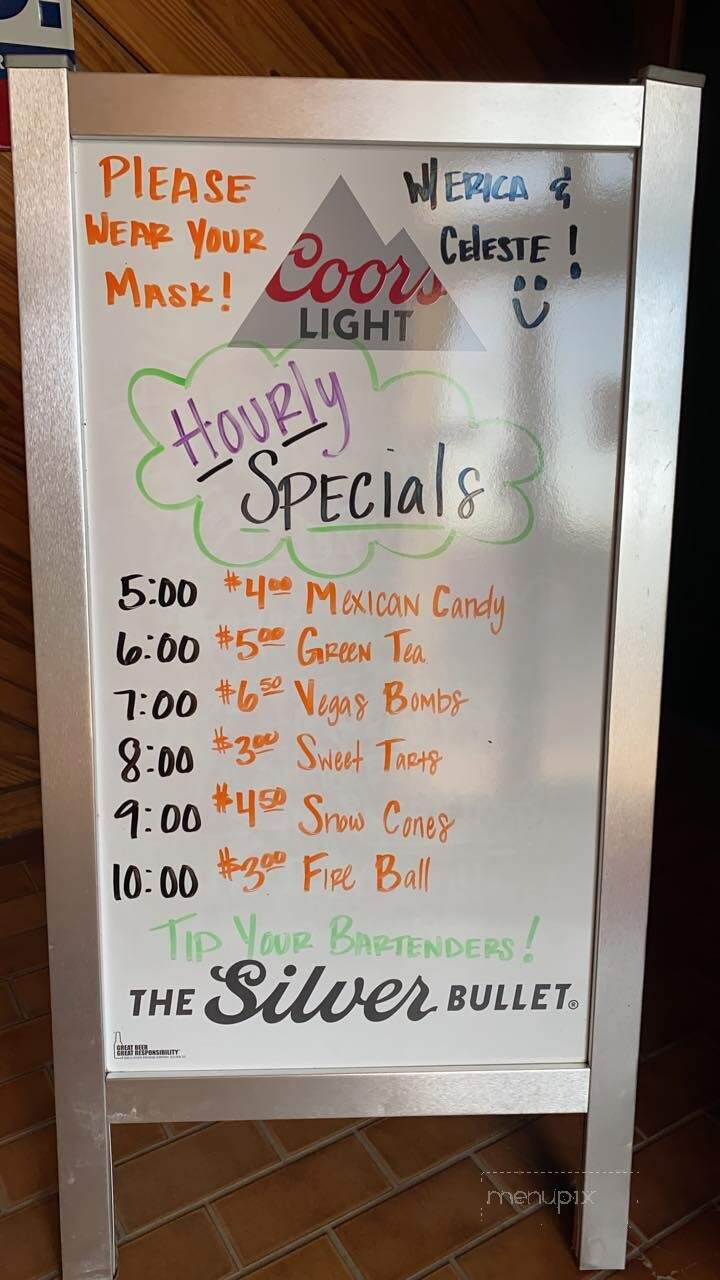 PLEASE
WEAR YOUR
MASK!
W/ ERICA &
CELESTE !
Coors
LIGHT
HOURLY
SPECIALS
5:00 $4.00 MEXICAN CANDY
6:00 $5.00 GREEN TEA
7:00 $6.50 VEGAS BOMBS
8:00 $3.00 SWEET TARTS
9:00 $4.50 SNOW CONES
10:00 $3.00 FIRE BALL
TIP YOUR BARTENDERS!
THE Silver BULLET®
GREAT BEER
GREAT RESPONSIBILITY
menupix